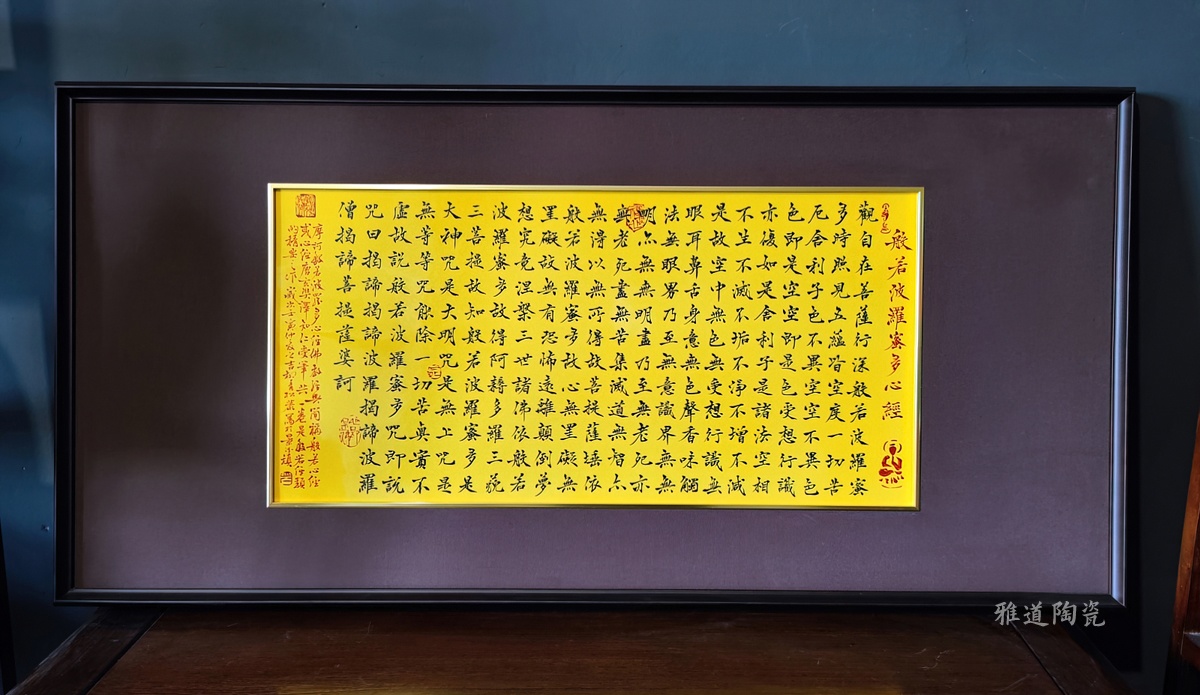 般若波羅蜜多心經
觀自在菩薩行深般若波羅蜜
多時照見五蘊皆空度一切苦
厄舍利子色不異空空不異色
色即是空空即是色受想行識
亦復如是舍利子是諸法空相
不生不滅不垢不淨不增不減
是故空中無色無受想行識無
眼耳鼻舌身意無色聲香味觸
法無眼界乃至無意識界無無
明亦無無明盡乃至無老死亦
無老死盡無苦集滅道無智亦
無得以無所得故菩提薩埵依
般若波羅蜜多故心無罣礙無
罣礙故無有恐怖遠離顛倒夢
想究竟涅槃三世諸佛依般若
波羅蜜多故得阿耨多羅三藐
三菩提故知般若波羅蜜多是
大神咒是大明咒是無上咒是
無等等咒能除一切苦真實不
虛故說般若波羅蜜多咒即說
咒曰揭諦揭諦波羅揭諦波羅
僧揭諦菩提薩婆訶
摩訶般若波羅蜜多心經佛教經典簡稱般若心經
或心經唐玄奘譯知仁受筆共一卷是般若經類
的精要
雅道陶瓷